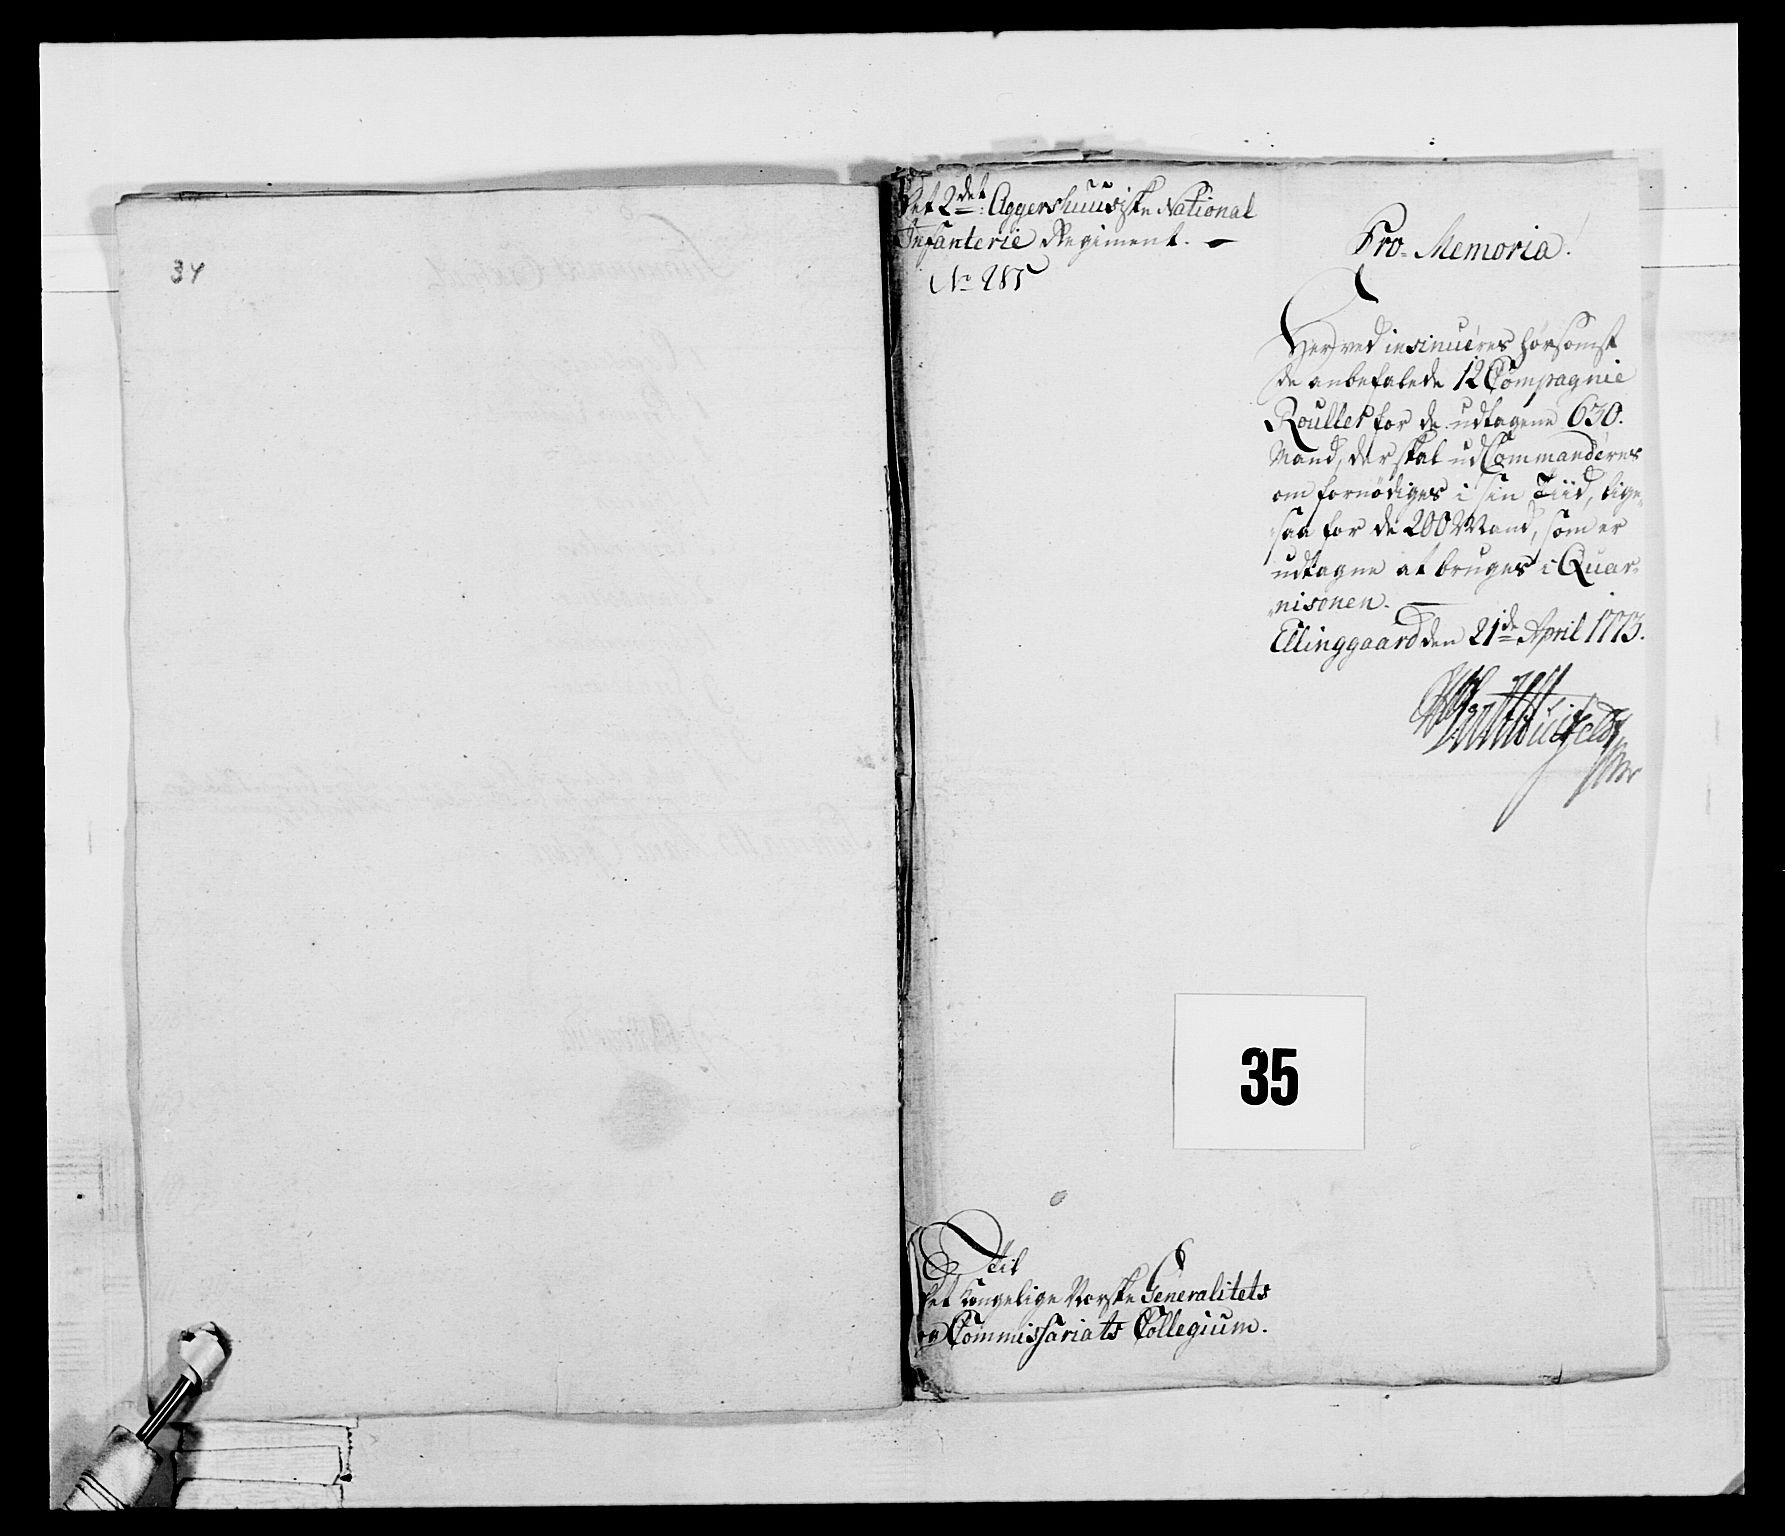 34
Det 2det Aggershuusiske National
Infanterie Regiment. -
No 285
Pro-Memoria!
Herved insinuéres hørsomst
de anbefalede 12 Compagnie
Roulles for de udtagene 630.
Mand, der skal ud Commandéres
om fornödiges i sin Tiid, lige-
saa for de 200 Mand, som er
udtagne at bruges i Quar-
nisonen.
Ellinggaard den 21de April 1773.
Huitfeldt
35
Til
Det Kongelige Norske Generalitets
og Commissariats Collegium.